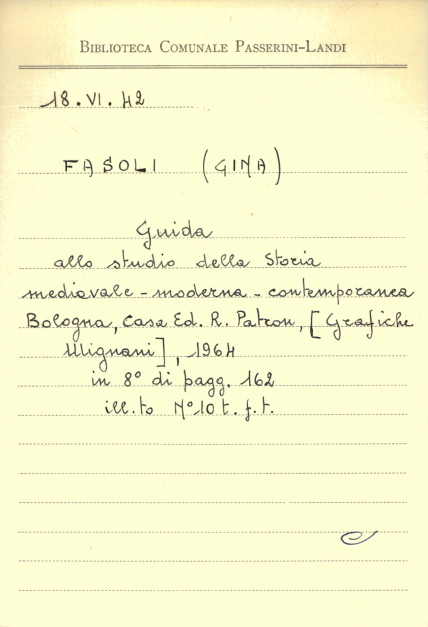 BIBLIOTECA COMUNALE PASSERINI-LANDI
18.VI.42
FASOLI (GINA)
Guida
allo studio della Storia
medievale - moderna - contemporanea
Bologna, Casa Ed. R. Patron, [Grafiche
Mignani], 1964
in 8° di pagg. 162
ill.to N° 10 t. f. t.